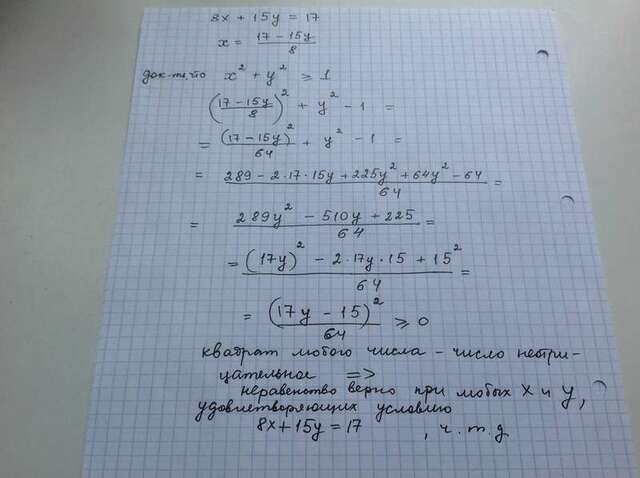 8x + 15y = 17
x = (17 - 15y)/8
док-ть, что x² + y² ≥ 1
((17 - 15y)/8)² + y² - 1 =
= (17 - 15y)²/64 + y² - 1 =
= (289 - 2·17·15y + 225y² + 64y² - 64)/64 =
= (289y² - 510y + 225)/64 =
= ((17y)² - 2·17y·15 + 15²)/64 =
= (17y - 15)²/64 ≥ 0
квадрат любого числа - число неотри-
цательное =>
неравенство верно при любых x и y,
удовлетворяющих условию
8x + 15y = 17 , ч.т.д